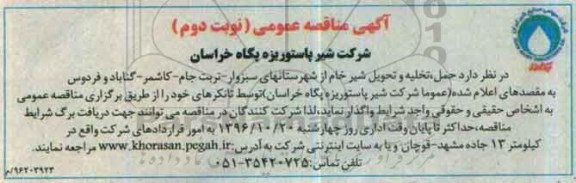 آگهی مناقصه عمومی (نوبت دوم)
شرکت شیر پاستوریزه پگاه خراسان
در نظر دارد حمل، تخلیه و تحویل شیر خام از شهرستانهای سبزوار-تربت جام-کاشمر-گناباد و فردوس
به مقصدهای اعلام شده (عموما شرکت شیر پاستوریزه پگاه خراسان) توسط تانکرهای خود را از طریق برگزاری مناقصه عمومی
به اشخاص حقیقی و حقوقی واجد شرایط واگذار نماید، لذا شرکت کنندگان در مناقصه می توانند جهت دریافت برگ شرایط
مناقصه، حداکثر تا پایان وقت اداری روز چهارشنبه ۱۳۹۶/۱۰/۲۰ به امور قراردادهای شرکت واقع در
کیلومتر ۱۳ جاده مشهد-قوچان و یا به سایت اینترنتی شرکت به آدرس: www.khorasan.pegah.ir مراجعه نمایند.
تلفن تماس: ۳۵۴۲۰۷۲۵-۰۵۱
۹۶۲۰۳۹۲۳/م